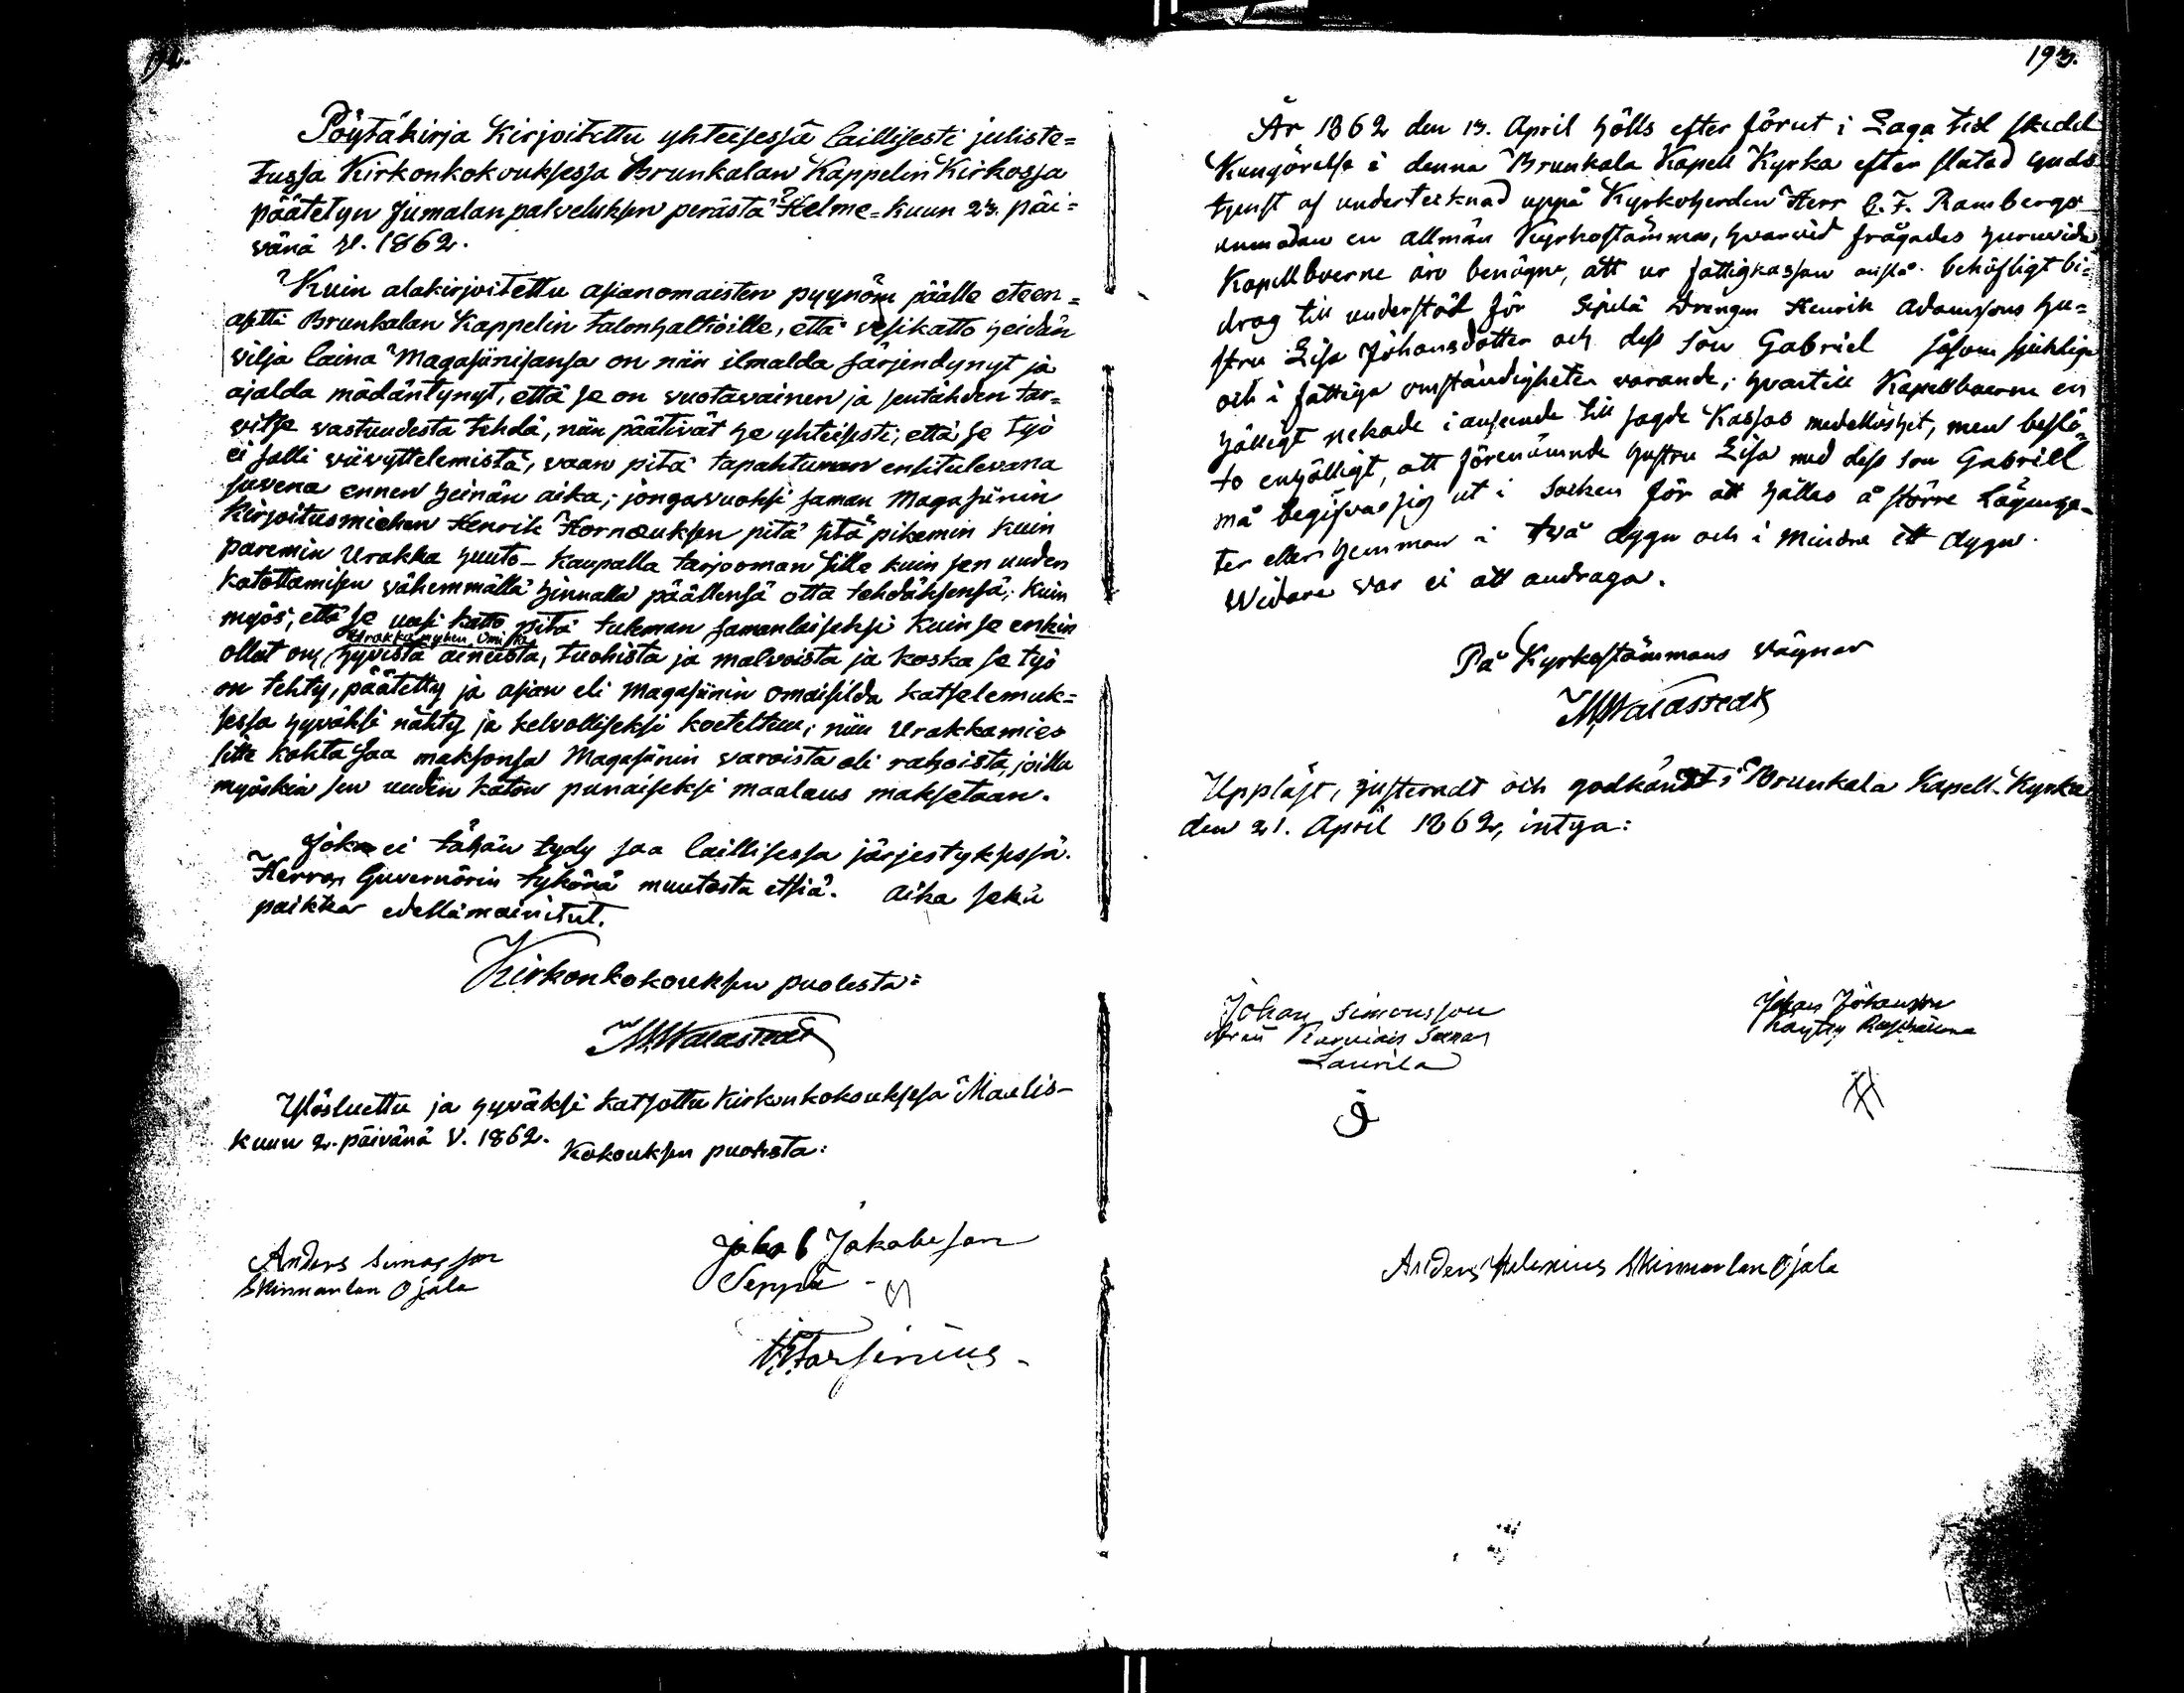 192.
Pöytäkirja Kirjoitettu yhteisessä laillisesti juliste=
tussa Kirkonkokouksessa Brunkalan Kappelin Kirkossa
päätetyn Jumalan palveluksen perästä Helme=kuun 23. päi=
vänä v. 1862.
Kuin alakirjoitettu asianomaisten pyynön päälle eteen=
asetti Brunkalan Kappelin talonhaltioille, että vesikatto heidän
vilja laina Magasiinisansa on niin ilmalda särjendynyt ja
ajalda mädäntynyt, että se on vuotavainen ja sentähden tar=
vitse vastuudesta tehdä, niin päätivät he yhteisesti; että se työ
ei salli viivyttelemistä, vaan pitä tapahtuman ensitulevana
suvena ennen heinän aika; jongavuoksi saman Magasiinin
Kirjoitusmiehen Henrik Hornæuksen pitä sitä pikemin kuin
paremin Urakka huuto-kaupalla tarjooman sille kuin sen uuden
katottamisen vähemmällä hinnalla päällensä otta tehdäksensä; kuin
myös; että se uusi katto pitä tuleman samanlaiseksi kuin se enkin
Urakkamiehen omista
ollut on, hyvistä aineista, tuohista ja malvoista ja koska se työ
on tehty, päätetty ja asian eli Magasiinin omaisilda katselemuk=
sessa hyväksi nähty ja kelvolliseksi koeteltuu; niin Urakkamies
sitte kohta saa maksonsa Magasiinin varoista eli rahoista, joilla
myöskin sen uuden katon punaiseksi maalaus maksetaan.
Joka ei tähän tydy saa laillisessa järjestyksessä
Herran Guvernörin tykönä muutosta etsiä. Aika sekä
paikka edellämainitut.
Kirkonkokouksen puolesta:
M. Walastedt
Ylösluettu ja hyväksi katsottu Kirkonkokouksessa Maalis-
kuun 2. päivänä v. 1862.
Kokouksen puolesta:
Anders Simosson Jakob Jakobsson
Skinnarlan Ojala Seppä
193.
År 1862 den 13. April hölls efter förut i Laga tid skedd
Kungörelse i denna Brunkala Kapell Kyrka efter slutad Guds
tjenst af undertecknad uppå Kyrkoherden Herr C. F. Rambergs
anmodan en allmän Kyrkostämma, hvarvid frågades huruvida
Kapellboerne äro benägne, att ur fattigkassan anslå behöfligt bi=
drag till understöd för Sipilä Drengen Henrik Adamssons hu=
stru Lisa Johansdotter och dess son Gabriel såsom sjuklige
och i fattiga omständigheter varande; hvartill Kapellboerne en
hälligt nekade i anseende till sagde Kassas medellöshet, men beslö=
to enhälligt, att förenämnde hustru Lisa med dess son Gabriel
må begifva sig ut i Socken för att hållas å större Lägenhe-
ter eller hemman i två dygn och i mindre ett dygn.
Widare var ei att andraga.
På Kyrkostämmans vägnar
M. Walastedt
Uppläst, justeradt och godkändt i Brunkala Kapell-Kyrka
den 21. April 1862, intyga:
Johan Simonsson Johan Johansson
Laurila
Anders Helenius Skinnarlan Ojala